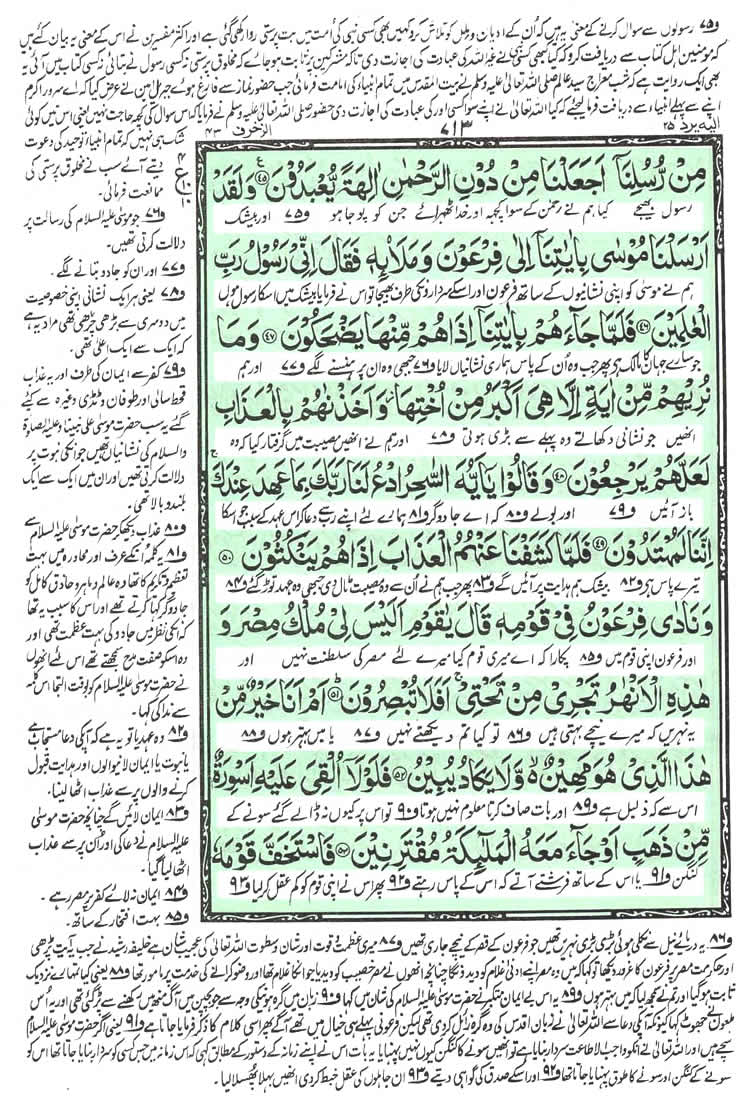 و۷۵ رسولوں سے سوال کرنے کے معنی یہ ہیں کہ اُن کے ادیان و ملل کو تلاش کرو کہیں بھی کسی نبی کی امت میں بت پرستی روا رکھی گئی ہے اور اکثر مفسرین نے اس کے معنی یہ بیان کئے ہیں
کہ مومنین اہل کتاب سے دریافت کرو کہ کیا کبھی کسی نبی نے غیر اللہ کی عبادت کی اجازت دی تاکہ مشرکین پر ثابت ہو جائے کہ مخلوق پرستی نہ کسی رسول نے بتائی نہ کسی کتاب میں آئی یہ
بھی ایک روایت ہے کہ شب معراج سید عالم صلی اللہ تعالیٰ علیہ وسلم نے بیت المقدس میں تمام انبیاء کی امامت فرمائی جب حضور نماز سے فارغ ہوئے جبریل امین نے عرض کیا کہ اے سرور اکرم
اپنے سے پہلے انبیاء سے دریافت فرما لیجئے کہ کیا اللہ تعالیٰ نے اپنے سوا کسی اور کی عبادت کی اجازت دی حضور صلی اللہ تعالیٰ علیہ وسلم نے فرمایا کہ اس سوال کی کچھ حاجت نہیں یعنی اس میں کوئی
الیہ یرد ۲۵
۷۱۳
الزخرف ۴۳
مِنْ رُّسُلِنَاۤ اَجَعَلْنَا مِنْ دُوْنِ الرَّحْمٰنِ اٰلِهَةً یُّعْبَدُوْنَ ۴۵ وَلَقَدْ
رسول بھیجے کیا ہم نے رحمٰن کے سوا کچھ اور خدا ٹھہرائے جن کو پوجا ہو و۷۵ اور بیشک
اَرْسَلْنَا مُوْسٰی بِاٰیٰتِنَاۤ اِلٰی فِرْعَوْنَ وَمَلَا۟ىِٕهٖ فَقَالَ اِنِّیْ رَسُوْلُ رَبِّ
ہم نے موسیٰ کو اپنی نشانیوں کے ساتھ فرعون اور اسکے سرداروں کی طرف بھیجا تو اس نے فرمایا بیشک میں اسکا رسول ہوں
الْعٰلَمِیْنَ ۴۶ فَلَمَّا جَآءَهُمْ بِاٰیٰتِنَاۤ اِذَا هُمْ مِّنْهَا یَضْحَكُوْنَ ۴۷ وَمَا
جو سارے جہان کا مالک ہے پھر جب وہ اُن کے پاس ہماری نشانیاں لایا و۷۶ جبھی وہ ان پر ہنسنے لگے و۷۷ اور ہم
نُرِیْهِمْ مِّنْ اٰیَةٍ اِلَّا هِیَ اَكْبَرُ مِنْ اُخْتِهَا وَاَخَذْنٰهُمْ بِالْعَذَابِ
انھیں جو نشانی دکھاتے وہ پہلے سے بڑی ہوتی و۷۸ اور ہم نے انھیں مصیبت میں گرفتار کیا کہ وہ
لَعَلَّهُمْ یَرْجِعُوْنَ ۴۸ وَقَالُوْا یٰۤاَیُّهَ السّٰحِرُ ادْعُ لَنَا رَبَّكَ بِمَا عَهِدَ عِنْدَكَ
باز آئیں و۷۹ اور بولے و۸۰ کہ اے جادوگر و۸۱ ہمارے لئے اپنے رب سے دعا کر اس عہد کے سبب جو اسکا
اِنَّنَا لَمُهْتَدُوْنَ ۴۹ فَلَمَّا كَشَفْنَا عَنْهُمُ الْعَذَابَ اِذَا هُمْ یَنْكُثُوْنَ ۵۰
تیرے پاس ہے و۸۲ بیشک ہم ہدایت پر آئیں گے و۸۳ پھر جب ہم نے اُن سے وہ مصیبت ٹال دی جبھی وہ عہد توڑ گئے و۸۴
وَنَادٰی فِرْعَوْنُ فِیْ قَوْمِهٖ قَالَ یٰقَوْمِ اَلَیْسَ لِیْ مُلْكُ مِصْرَ وَ
اور فرعون اپنی قوم میں و۸۵ پکارا کہ اے میری قوم کیا میرے لئے مصر کی سلطنت نہیں اور
هٰذِهِ الْاَنْهٰرُ تَجْرِیْ مِنْ تَحْتِیْ اَفَلَا تُبْصِرُوْنَ ۵۱ اَمْ اَنَا خَیْرٌ مِّنْ
یہ نہریں کہ میرے نیچے بہتی ہیں و۸۶ تو کیا تم دیکھتے نہیں و۸۷ یا میں بہتر ہوں و۸۸
هٰذَا الَّذِیْ هُوَ مَهِیْنٌ وَّلَا یَكَادُ یُبِیْنُ ۵۲ فَلَوْلَاۤ اُلْقِیَ عَلَیْهِ اَسْوِرَةٌ
اس سے کہ ذلیل ہے و۸۹ اور بات صاف کرتا معلوم نہیں ہوتا و۹۰ تو اس پر کیوں نہ ڈالے گئے سونے کے
مِّنْ ذَهَبٍ اَوْ جَآءَ مَعَهُ الْمَلٰٓىِٕكَةُ مُقْتَرِنِیْنَ ۵۳ فَاسْتَخَفَّ قَوْمَهٗ
کنگن و۹۱ یا اس کے ساتھ فرشتے آتے کہ اس کے پاس رہتے و۹۲ پھر اس نے اپنی قوم کو کم عقل کر لیا و۹۳
شک ہی نہیں کہ تمام انبیاء توحید کی دعوت
دیتے آئے سب نے مخلوق پرستی کی
ممانعت فرمائی۔
و۷۶ جو موسیٰ علیہ السلام کی رسالت پر
دلالت کرتی تھیں۔
و۷۷ اور ان کو جادو بتانے لگے۔
و۷۸ یعنی ہر ایک نشانی اپنی خصوصیت
میں دوسری سے بڑھی چڑھی تھی مراد یہ ہے
کہ ایک سے ایک اعلیٰ تھی۔
و۷۹ کفر سے ایمان کی طرف اور یہ عذاب
قحط سالی اور طوفان و ٹڈی وغیرہ سے کئے
گئے یہ سب حضرت موسیٰ علی نبینا وعلیہ الصلاۃ
والسلام کی نشانیاں تھیں جو انکی نبوت پر
دلالت کرتی تھیں اور ان میں ایک سے ایک
بلند و بالا تھی۔
و۸۰ عذاب دیکھکر حضرت موسیٰ علیہ السلام سے
و۸۱ یہ کلمہ انکے عرف اور محاورہ میں بہت
تعظیم و تکریم کا تھا وہ عالم و ماہر و حاذق کامل کو
جادوگر کہا کرتے تھے اور اس کا سبب یہ تھا
کہ انکی نظر میں جادو کی بہت عظمت تھی اور
وہ اسکو صفت مدح سمجھتے تھے اس لئے انھوں
نے حضرت موسیٰ علیہ السلام کو بوقت التجا اس کلمہ
سے ندا کی کہا۔
و۸۲ وہ عہد یا تو یہ ہے کہ آپکی دعا مستجاب ہے
یا نبوت یا ایمان لانیوالوں اور ہدایت قبول
کرنے والوں پر سے عذاب اٹھا لینا۔
و۸۳ ایمان لائیں گے چنانچہ حضرت موسیٰ
علیہ السلام نے دعا کی اور اُن پر سے عذاب
اٹھا لیا گیا۔
و۸۴ ایمان نہ لائے کفر پر مصر رہے۔
و۸۵ بہت افتخار کے ساتھ۔
و۸۶ یہ دریائے نیل سے نکلی ہوئی بڑی بڑی نہریں تھیں جو فرعون کے قصر کے نیچے جاری تھیں و۸۷ میری عظمت و قوت اور شان و سطوت اللہ تعالیٰ کی عجیب شان ہے خلیفہ رشید نے جب یہ آیت پڑھی
اور حکومت مصر پر فرعون کا غرور دیکھا تو کہا کہ میں وہ مصر اپنے ادنیٰ غلام کو دے دونگا چنانچہ انھوں نے مصر خصیب کو دیدیا جو انکا غلام تھا اور وضو کرانے کی خدمت پر مامور تھا و۸۸ یعنی کیا تمہارے نزدیک
ثابت ہو گیا اور تم نے سمجھ لیا کہ میں بہتر ہوں و۸۹ یہ اس بے ایمان متکبر نے حضرت موسیٰ علیہ السلام کی شان میں کہا و۹۰ زبان میں گرہ ہونیکی وجہ سے جو بچپن میں آگ منہ میں رکھنے سے پڑ گئی تھی اور یہ اُس
ملعون نے جھوٹ کہا کیونکہ آپکی دعا سے اللہ تعالیٰ نے زبان اقدس کی وہ گرہ زائل کر دی تھی لیکن فرعونی پہلے ہی خیال میں تھے آگے پھر اسی کلام کا ذکر فرمایا جاتا ہے و۹۱ یعنی اگر حضرت موسیٰ علیہ السلام
سچے ہیں اور اللہ تعالیٰ نے انکو واجب الاطاعت سردار بنایا ہے تو انھیں سونے کا کنگن کیوں نہیں پہنایا یہ بات اس نے اپنے زمانہ کے دستور کے مطابق کہی کہ اس زمانہ میں جس کسی کو سردار بنایا جاتا تھا اس کو
سونے کے کنگن اور سونے کا طوق پہنایا جاتا تھا و۹۲ اور اسکے صدق کی گواہی دیتے و۹۳ ان جاہلوں کی عقل خبط کر دی انھیں بہلا پھسلا لیا۔